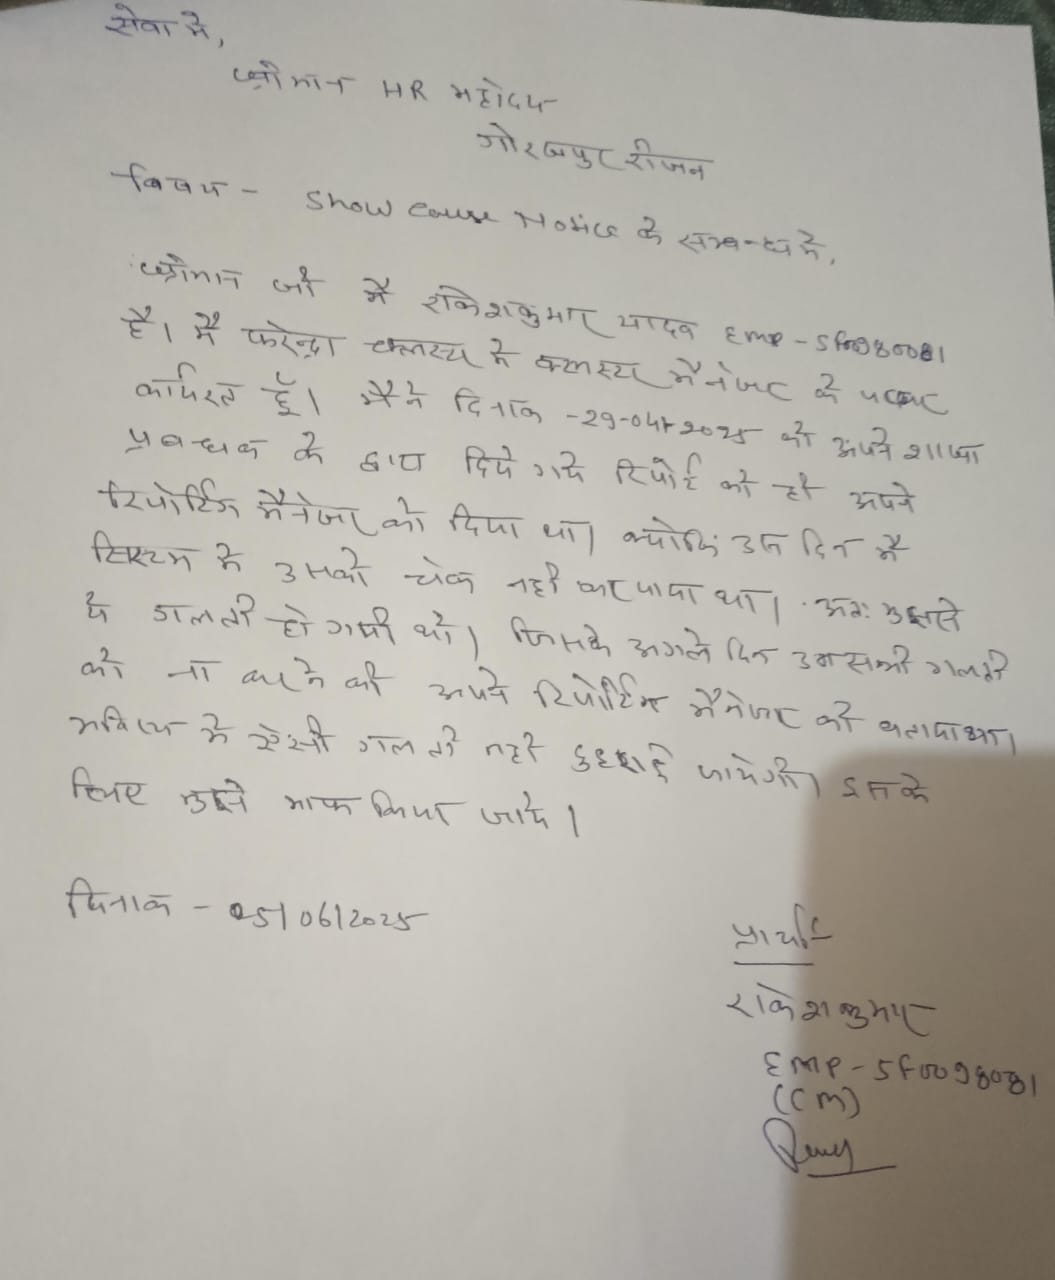 सेवा में,
श्रीमान HR महोदय
गोरखपुर रीजन
विषय - Show Cause Notice के सम्बन्ध में,
श्रीमान जी मैं राकेश कुमार यादव EMP - SF0098081
है। मैं फरेन्दा क्लस्टर में क्लस्टर मैनेजर के पद पर
कार्यरत हूँ। मैंने दिनांक -29-04-2025 को अपने शाखा
प्रबन्धक के द्वारा दिये गये रिपोर्ट को ही अपने
रिपोर्टिंग मैनेजर को दिया था। क्योंकि उस दिन मैं
सिस्टम में उसको चेक नहीं कर पाया था। अतः मुझसे
ये गलती हो गयी थी। जिसके अगले दिन उन सभी गलती
को ना करने की अपने रिपोर्टिंग मैनेजर को बताया था।
भविष्य में ऐसी गलती नहीं दुहराई जायेगी। इसके
लिए मुझे माफ किया जाये।
दिनांक - 05/06/2025
प्रार्थी
राकेश कुमार
EMP - SF0098081
(CM)